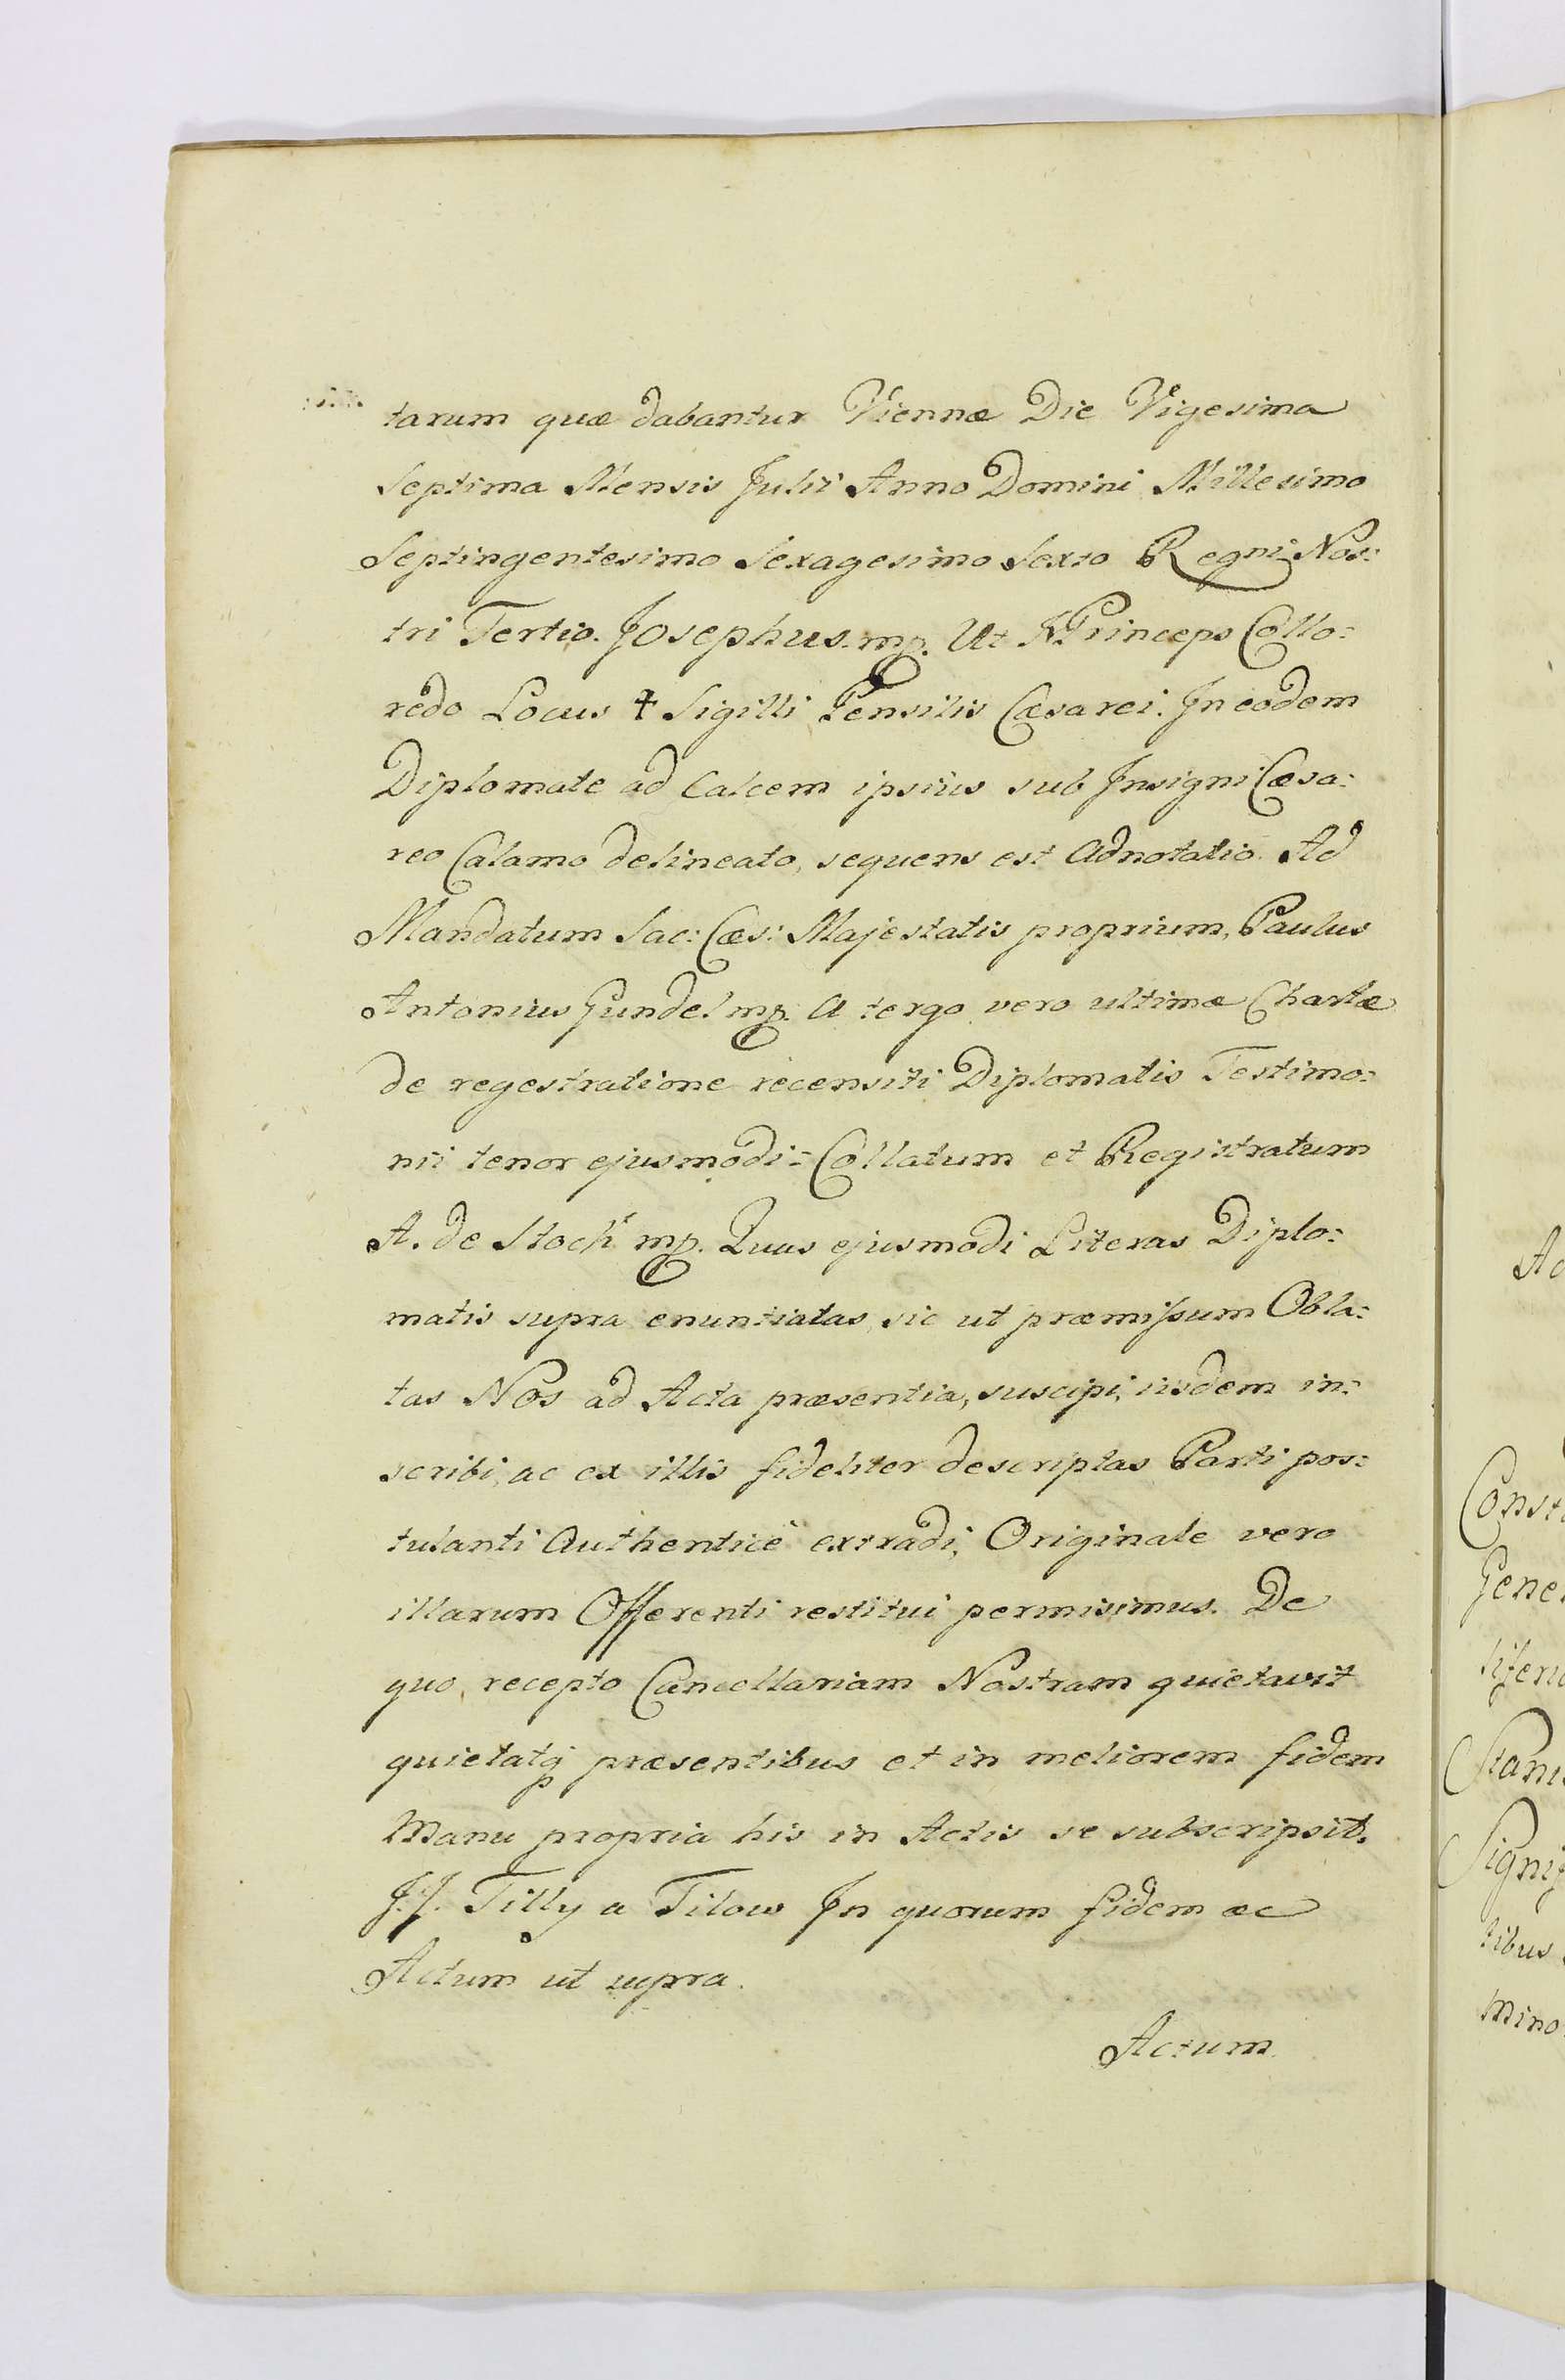 tarum quæ dabantur Viennæ Die Vigesima
Septima Mensis Julii Anno Domini Millesimo
Septingentesimo Sexagesimo Sexto Regni Nos:
tri Tertio. Josephus. mp. Ut Princeps Collo:
redo Locus ✝ Sigilli Pensilis Cæsarei. In eodem
Diplomate ad Calcem ipsius sub Insigni Cæsa:
reo Calamo delineato, sequens est Adnotatio. Ad
Mandatum Sac: Cæs: Majestatis proprium, Paulus
Antonius Gundel mp. A tergo vero ultimæ Chartæ
de regestratione recensiti Diplomatis Testimo:
nii tenor ejusmodi = Collatum et Registratum
A. de Stock mp. Quas ejusmodi Literas Diplo:
matis supra enuntiatas, sic ut præmissum Obla:
tas Nos ad Acta præsentia, suscipi, iisdem in:
scribi, ac ex illis fideliter descriptas Parti pos:
tulanti Authentice extradi, Originale vero
illarum Offerenti restitui permisimus. De
quo, recepto Cancellariam Nostram quietavit
quietatq præsentibus et in meliorem fidem
Manu propria his in Actis se subscripsit.
J. J. Tilly a Tilow In quorum fidem ac
Actum ut supra.
Actum
Const
Gene
Stani
Signif
tibus
mino